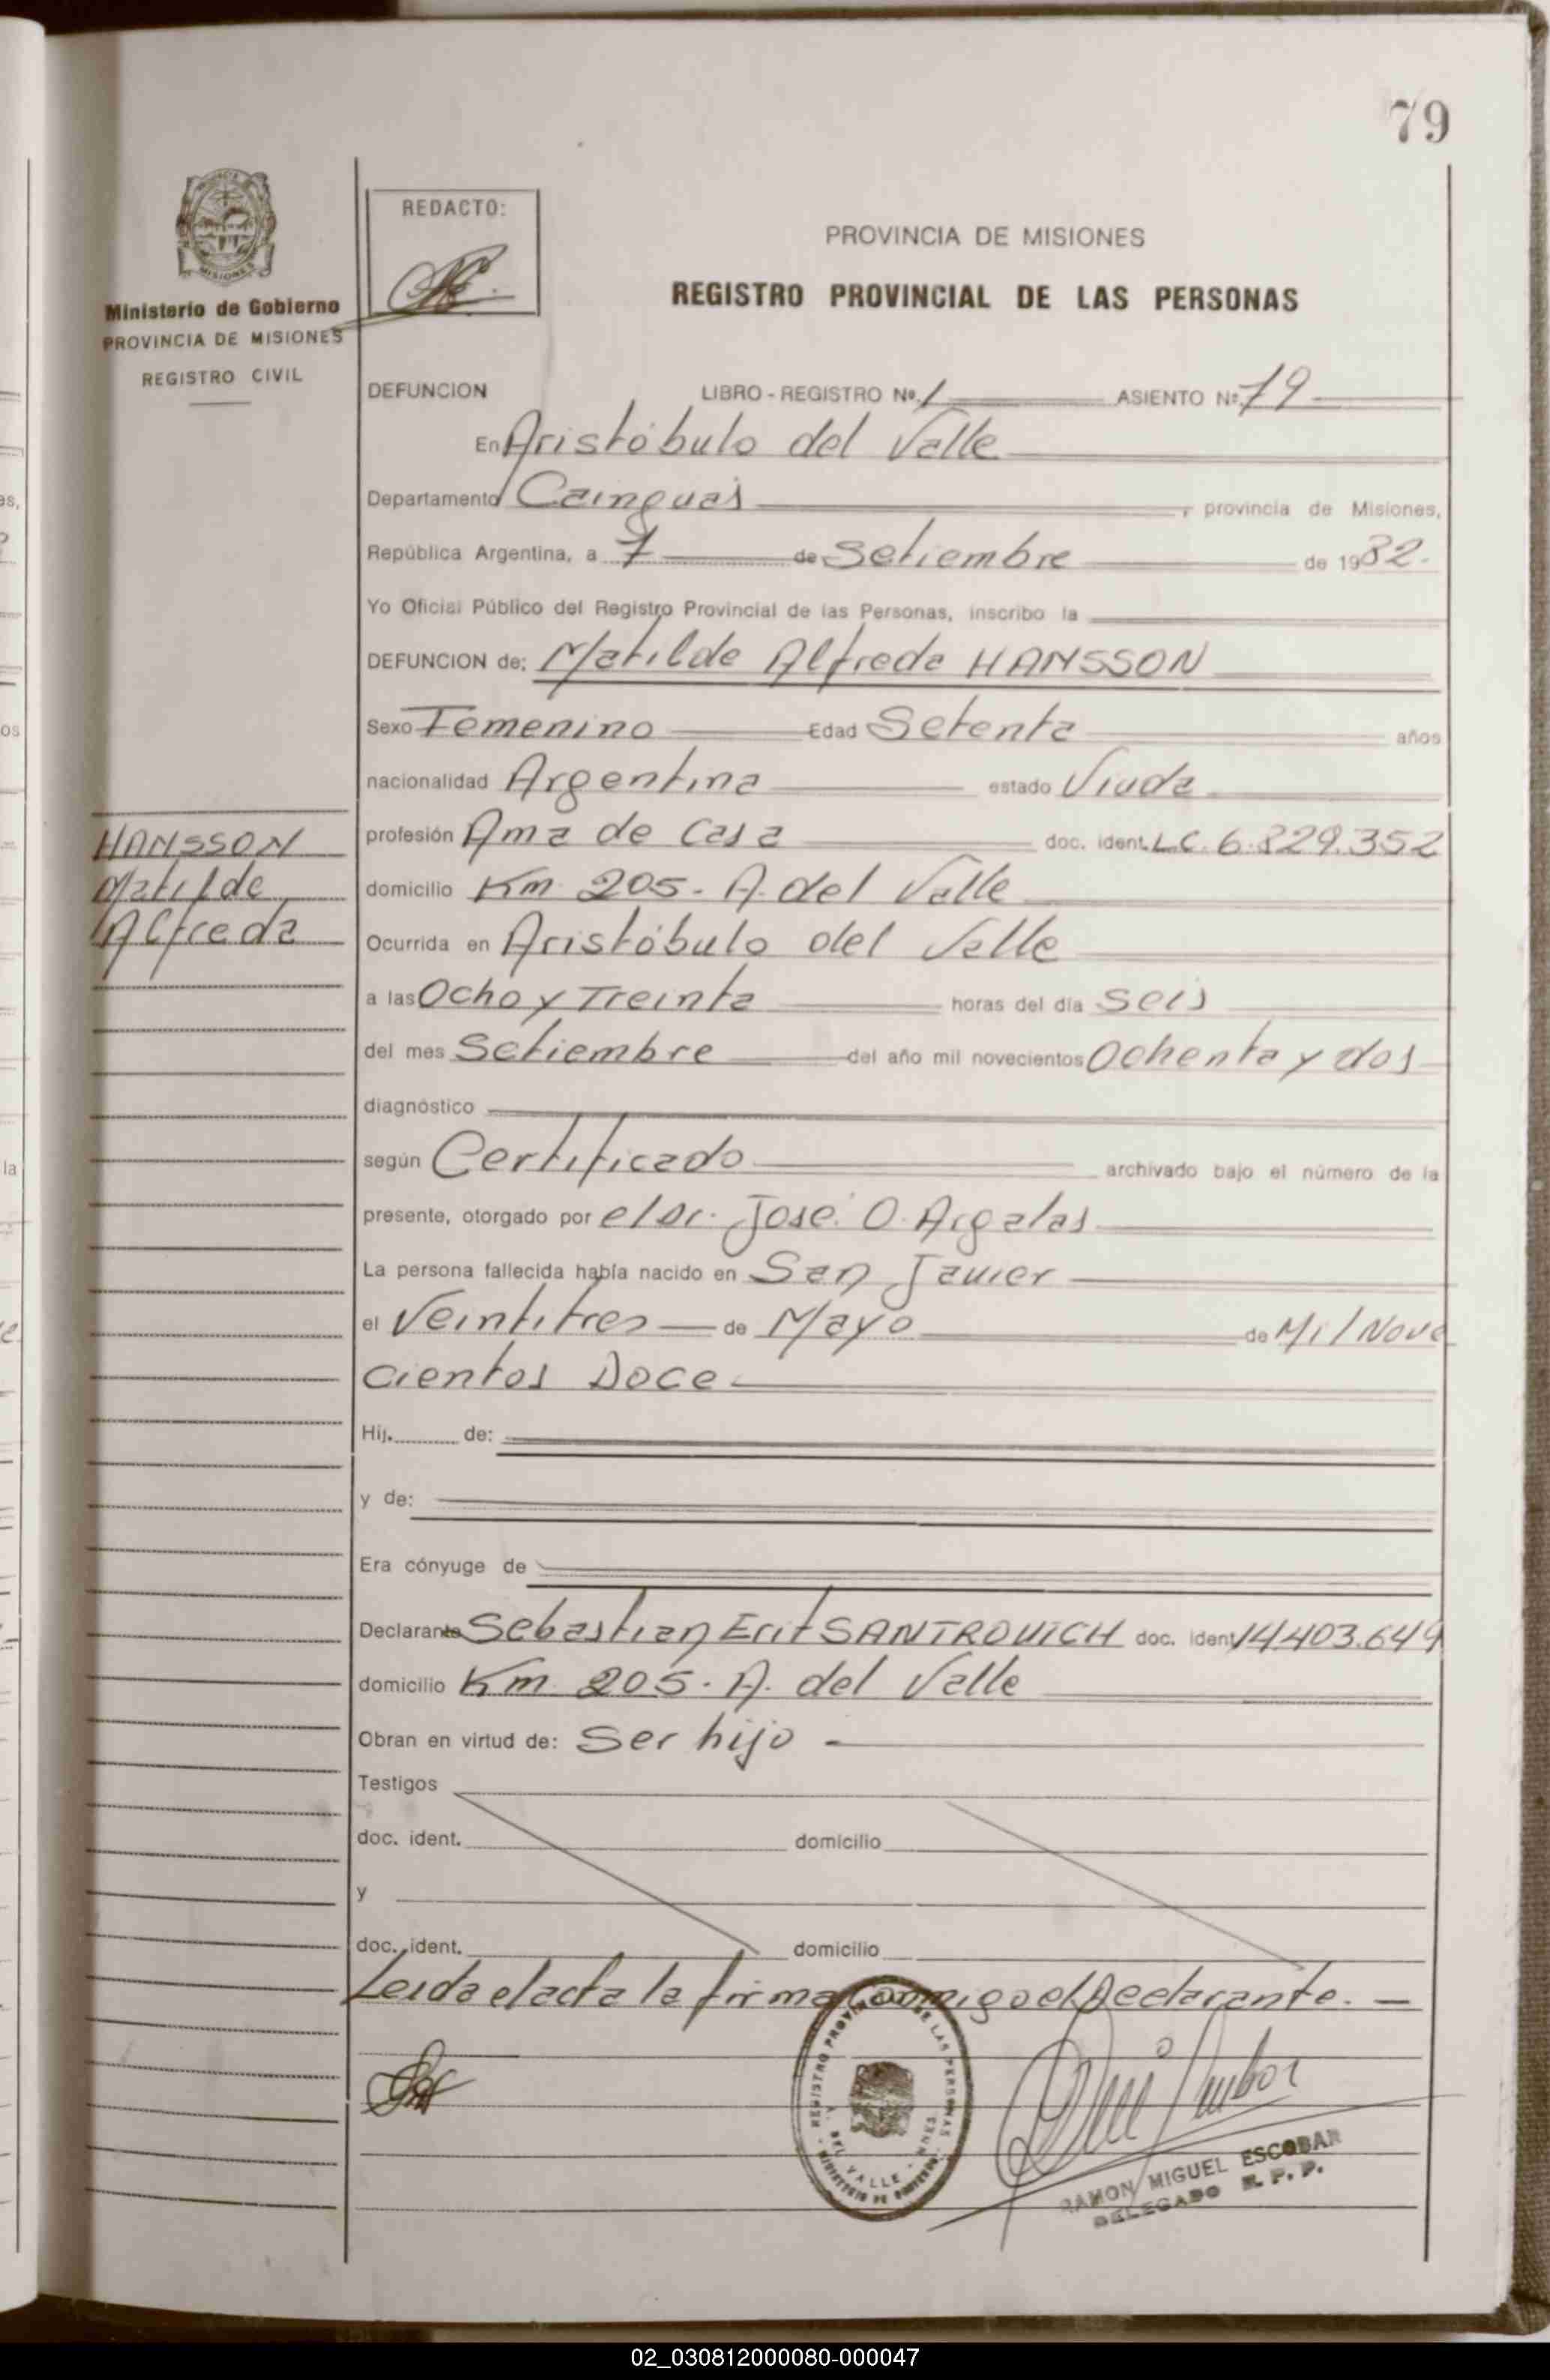 79
REDACTO:
PROVINCIA DE MISIONES
REGISTRO PROVINCIAL DE LAS PERSONAS
MISIONES
Ministerio de Gobierno
PROVINCIA DE MISIONES
REGISTRO CIVIL
DEFUNCION LIBRO - REGISTRO Nº. 1 ASIENTO Nº. 79
En Aristóbulo del Valle
Departamento Cainguás, provincia de Misiones,
República Argentina, a 7 de Setiembre de 1982.
Yo Oficial Público del Registro Provincial de las Personas, inscribo la
DEFUNCION de: Matilde Alfreda HANSSON
Sexo Femenino Edad Setenta años
nacionalidad Argentina estado Viuda
profesión Ama de Casa doc. ident. L.C. 6.829.352
domicilio Km 205. A. del Valle
HANSSON
Matilde
Alfreda
Ocurrida en Aristóbulo del Valle
a las Ocho y Treinta horas del día Seis
del mes Setiembre del año mil novecientos Ochenta y dos
diagnóstico
según Certificado archivado bajo el número de la
presente, otorgado por el Dr. José O. Argalas
La persona fallecida había nacido en San Javier
el Veintitres de Mayo de Mil Nove
cientos Doce
Hij. de:
y de:
Era cónyuge de
Declarante Sebastian Erit SANTROVICH doc. ident 14.403.649
domicilio Km 205. A. del Valle
Obran en virtud de: Ser hijo
Testigos
doc. ident. domicilio
y
doc. ident. domicilio
Leida el acta la firma conmigo el Declarante.
REGISTRO PROVINCIAL DE LAS PERSONAS
DEL VALLE - MNES
MINISTERIO DE GOBIERNO
RAMON MIGUEL ESCOBAR
DELEGADO R. P. P.
02_030812000080-000047